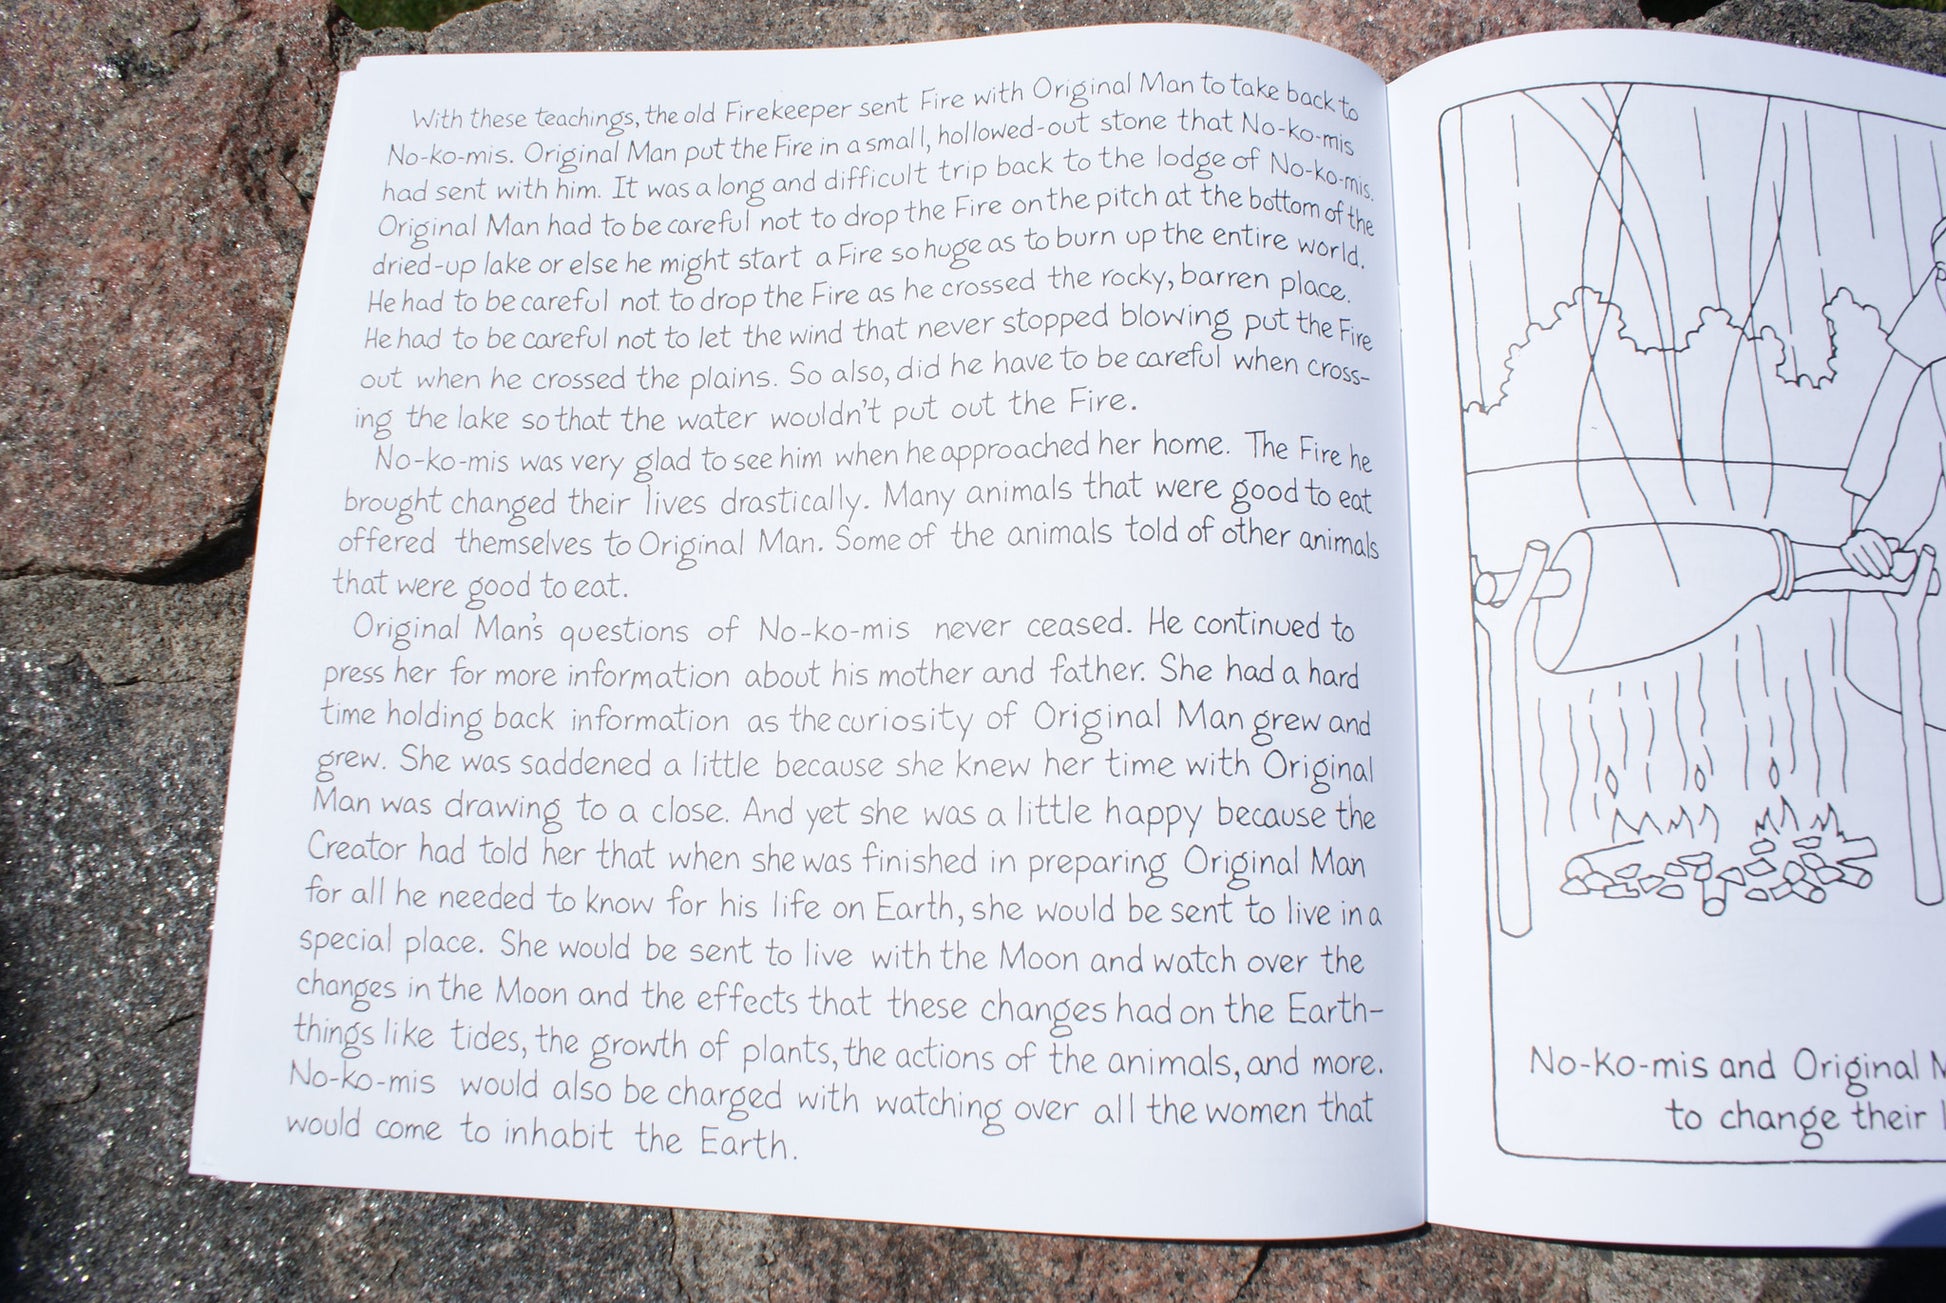 With these teachings, the old Firekeeper sent Fire with Original Man to take back to
No-ko-mis. Original Man put the Fire in a small, hollowed-out stone that No-ko-mis
had sent with him. It was a long and difficult trip back to the lodge of No-ko-mis.
Original Man had to be careful not to drop the Fire on the pitch at the bottom of the
dried-up lake or else he might start a Fire so huge as to burn up the entire world.
He had to be careful not to drop the Fire as he crossed the rocky, barren place.
He had to be careful not to let the wind that never stopped blowing put the Fire
out when he crossed the plains. So also, did he have to be careful when cross-
ing the lake so that the water wouldn't put out the Fire.
No-ko-mis was very glad to see him when he approached her home. The Fire he
brought changed their lives drastically. Many animals that were good to eat
offered themselves to Original Man. Some of the animals told of other animals
that were good to eat.
Original Man's questions of No-ko-mis never ceased. He continued to
press her for more information about his mother and father. She had a hard
time holding back information as the curiosity of Original Man grew and
grew. She was saddened a little because she knew her time with Original
Man was drawing to a close. And yet she was a little happy because the
Creator had told her that when she was finished in preparing Original Man
for all he needed to know for his life on Earth, she would be sent to live in a
special place. She would be sent to live with the Moon and watch over the
changes in the Moon and the effects that these changes had on the Earth-
things like tides, the growth of plants, the actions of the animals, and more.
No-ko-mis would also be charged with watching over all the women that
would come to inhabit the Earth.
No-ko-mis and Original
to change their